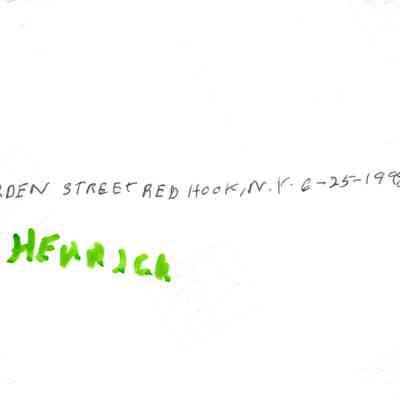 RDEN STREET RED HOOK, N.Y. 6-25-199
HENRICK